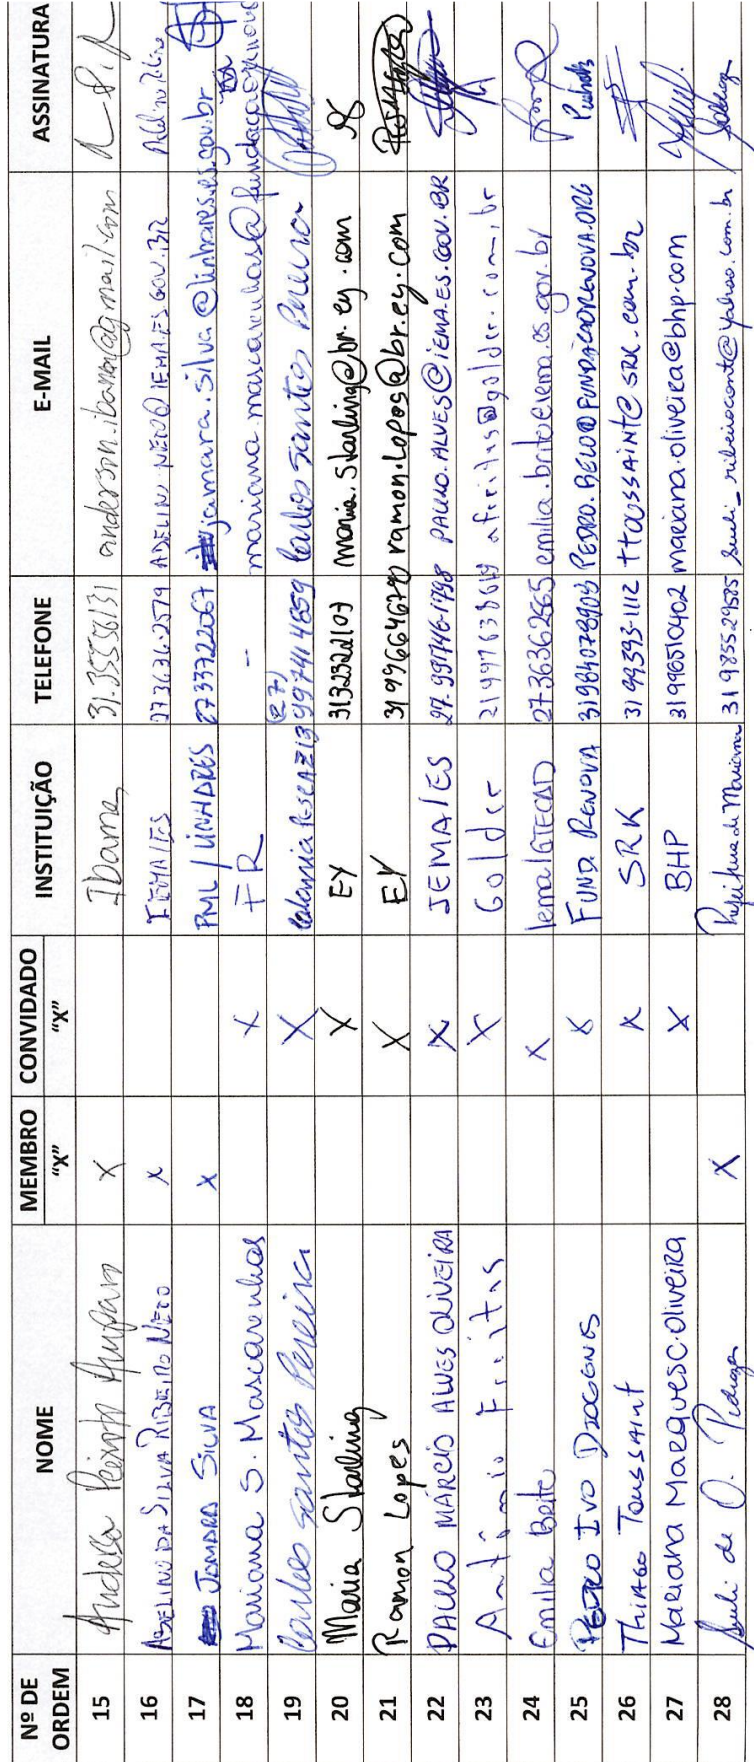 Nº DE ORDEM NOME MEMBRO "X" CONVIDADO "X" INSTITUIÇÃO TELEFONE E-MAIL ASSINATURA
15 Peixoto X Ibama 31.35556131 anderson.ibama@gmail.com
16 ADELINO DA SILVA RIBEIRO NETO X IEMA/ES 273636-2579 ADELINO.NETO@IEMA.ES.GOV.BR
17 JAMARA SILVA X PML/LINHARES 2733722067 jamara.silva@linhares.es.gov.br
18 Mariana S. Mascarenhas X FR - mariana.mascarenhas@fundacaorenova
19 Carlos Santos Pereira X (27) 997414859 Carlos Santos Pereira
20 Maria Starling X EY 3132322107 maria.starling@br.ey.com
21 Ramon Lopes X EY 31 996646770 ramon.lopes@br.ey.com
22 PAULO MÁRCIO ALVES OLIVEIRA X IEMA/ES 27.99746-1798 PAULO.ALVES@iEMA.ES.GOV.BR
23 Antônio Freitas X Golder afreitas@golder.com.br
24 Emilia Brito X Iema/GTECAD 2736362565 emilia.brito@iema.es.gov.br
25 PEDRO IVO DIOGENES X FUND. RENOVA PEDRO.BELO@FUNDACAORENOVA.ORG
26 THIAGO TOUSSAINT X SRK 31 99393-1112 ttoussaint@srk.com.br
27 Mariana Marques C. Oliveira X BHP 31 996510402 mariana.oliveira@bhp.com
28 Sueli de O. X Prefeitura de Mariana 31 9855.29585 Sueli_ribeirocont@yahoo.com.br